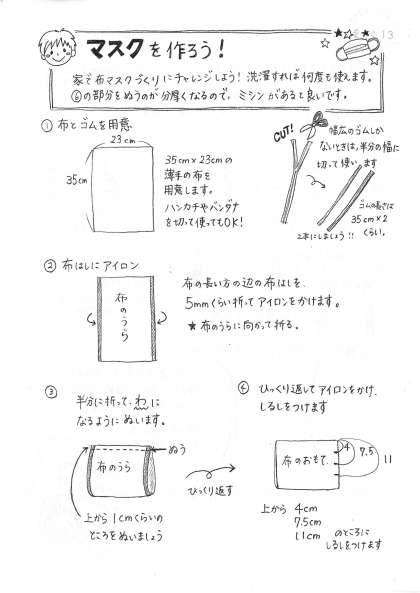 13
マスクを作ろう!
家で布マスクづくりにチャレンジしよう! 洗濯すれば何度も使えます。
⑥の部分をぬうのが分厚くなるので、ミシンがあると良いです。
① 布とゴムを用意
23cm
35cm
35cm×23cmの
薄手の布を
用意します。
ハンカチやバンダナ
を切って使ってもOK!
CUT!
幅広のゴムしか
ないときは、半分の幅に
切って使います
ゴムの長さは
35cm×2
くらい。
2本にしましょう!!
② 布はしにアイロン
布のうら
布の長い方の辺の布はしを、
5mmくらい折ってアイロンをかけます。
★布のうらに向かって折る。
③
半分に折って、わに
なるようにぬいます。
ぬう
布のうら
上から1cmくらいの
ところをぬいましょう
ひっくり返す
④ ひっくり返してアイロンをかけ、
しるしをつけます
布のおもて
4
7.5
11
上から 4cm
7.5cm
11cm
のところに
しるしをつけます